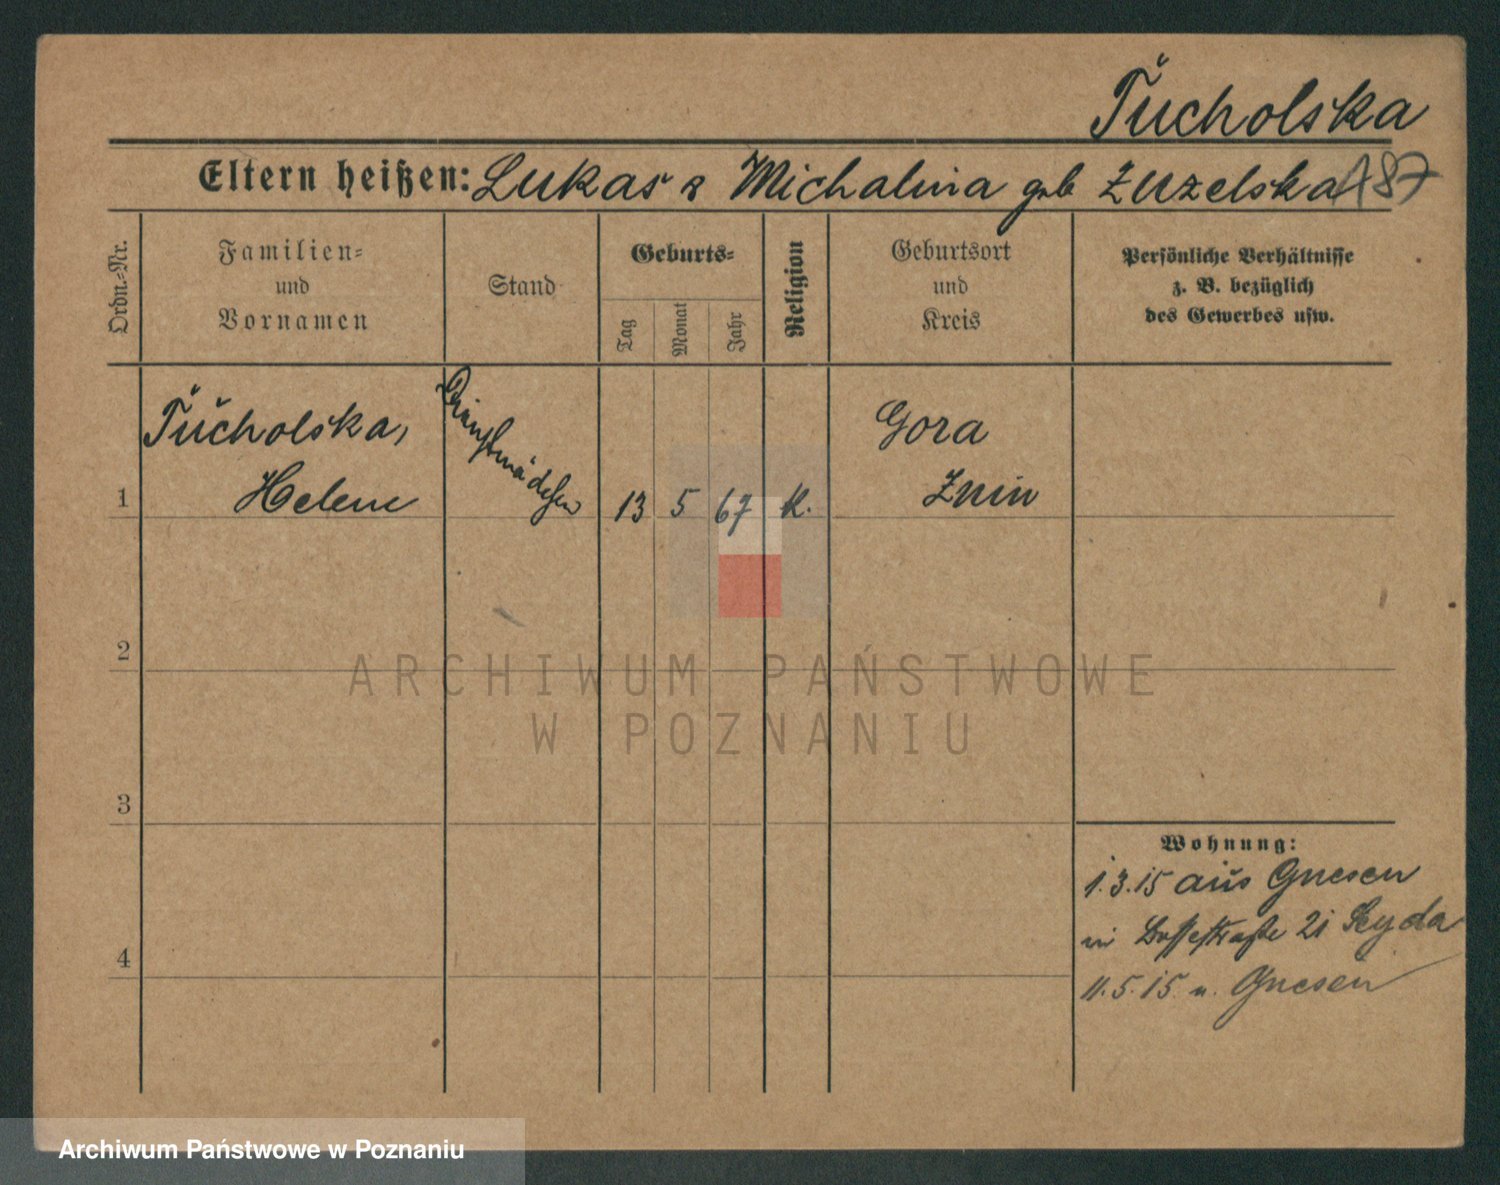 Tucholska
Eltern heißen: Lukas & Michalina geb Zuzelska 187
Ordn.-Nr.
Familien-
und
Vornamen
Stand
Geburts-
Tag
Monat
Jahr
Religion
Geburtsort
und
Kreis
Persönliche Verhältnisse
z. B. bezüglich
des Gewerbes usw.
1
Tucholska,
Helene
Dienstmädchen
13
5
67
k.
Gora
Znin
2
3
4
Wohnung:
1.3.15 aus Gnesen
in 21 Seyda
11.5.15 n. Gnesen
ARCHIWUM PAŃSTWOWE
W POZNANIU
Archiwum Państwowe w Poznaniu